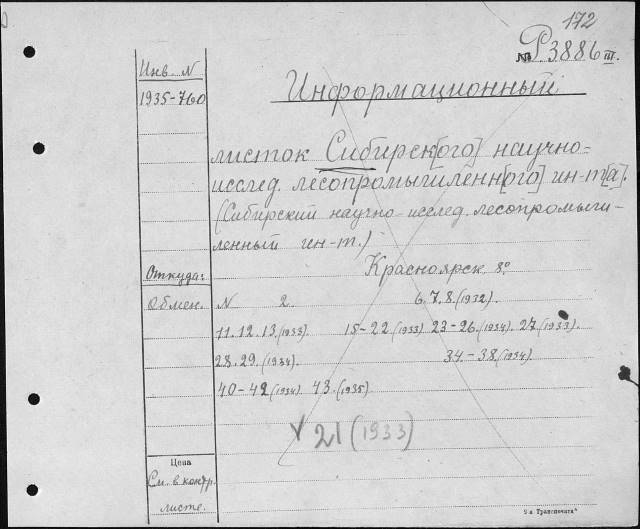 172
№ Р3886 III.
Инв. N
1935-760
Информационный
листок Сибирск[ого] научно-
исслед. лесопромышленн[ого] ин-т[а].
(Сибирский научно исслед. лесопромыш-
ленный ин-т.)
Красноярск 8º
Откуда:
Обмен.
N 2. 6.7.8.(1932).
11.12.13.(1933). 15-22(1933) 23-26.(1934). 27(1933).
28.29.(1934). 34-38.(1934)
40-42(1934) 43.(1935).
V 21 (1933)
Цена
См. в контр.
листе.
9-я Транспечать